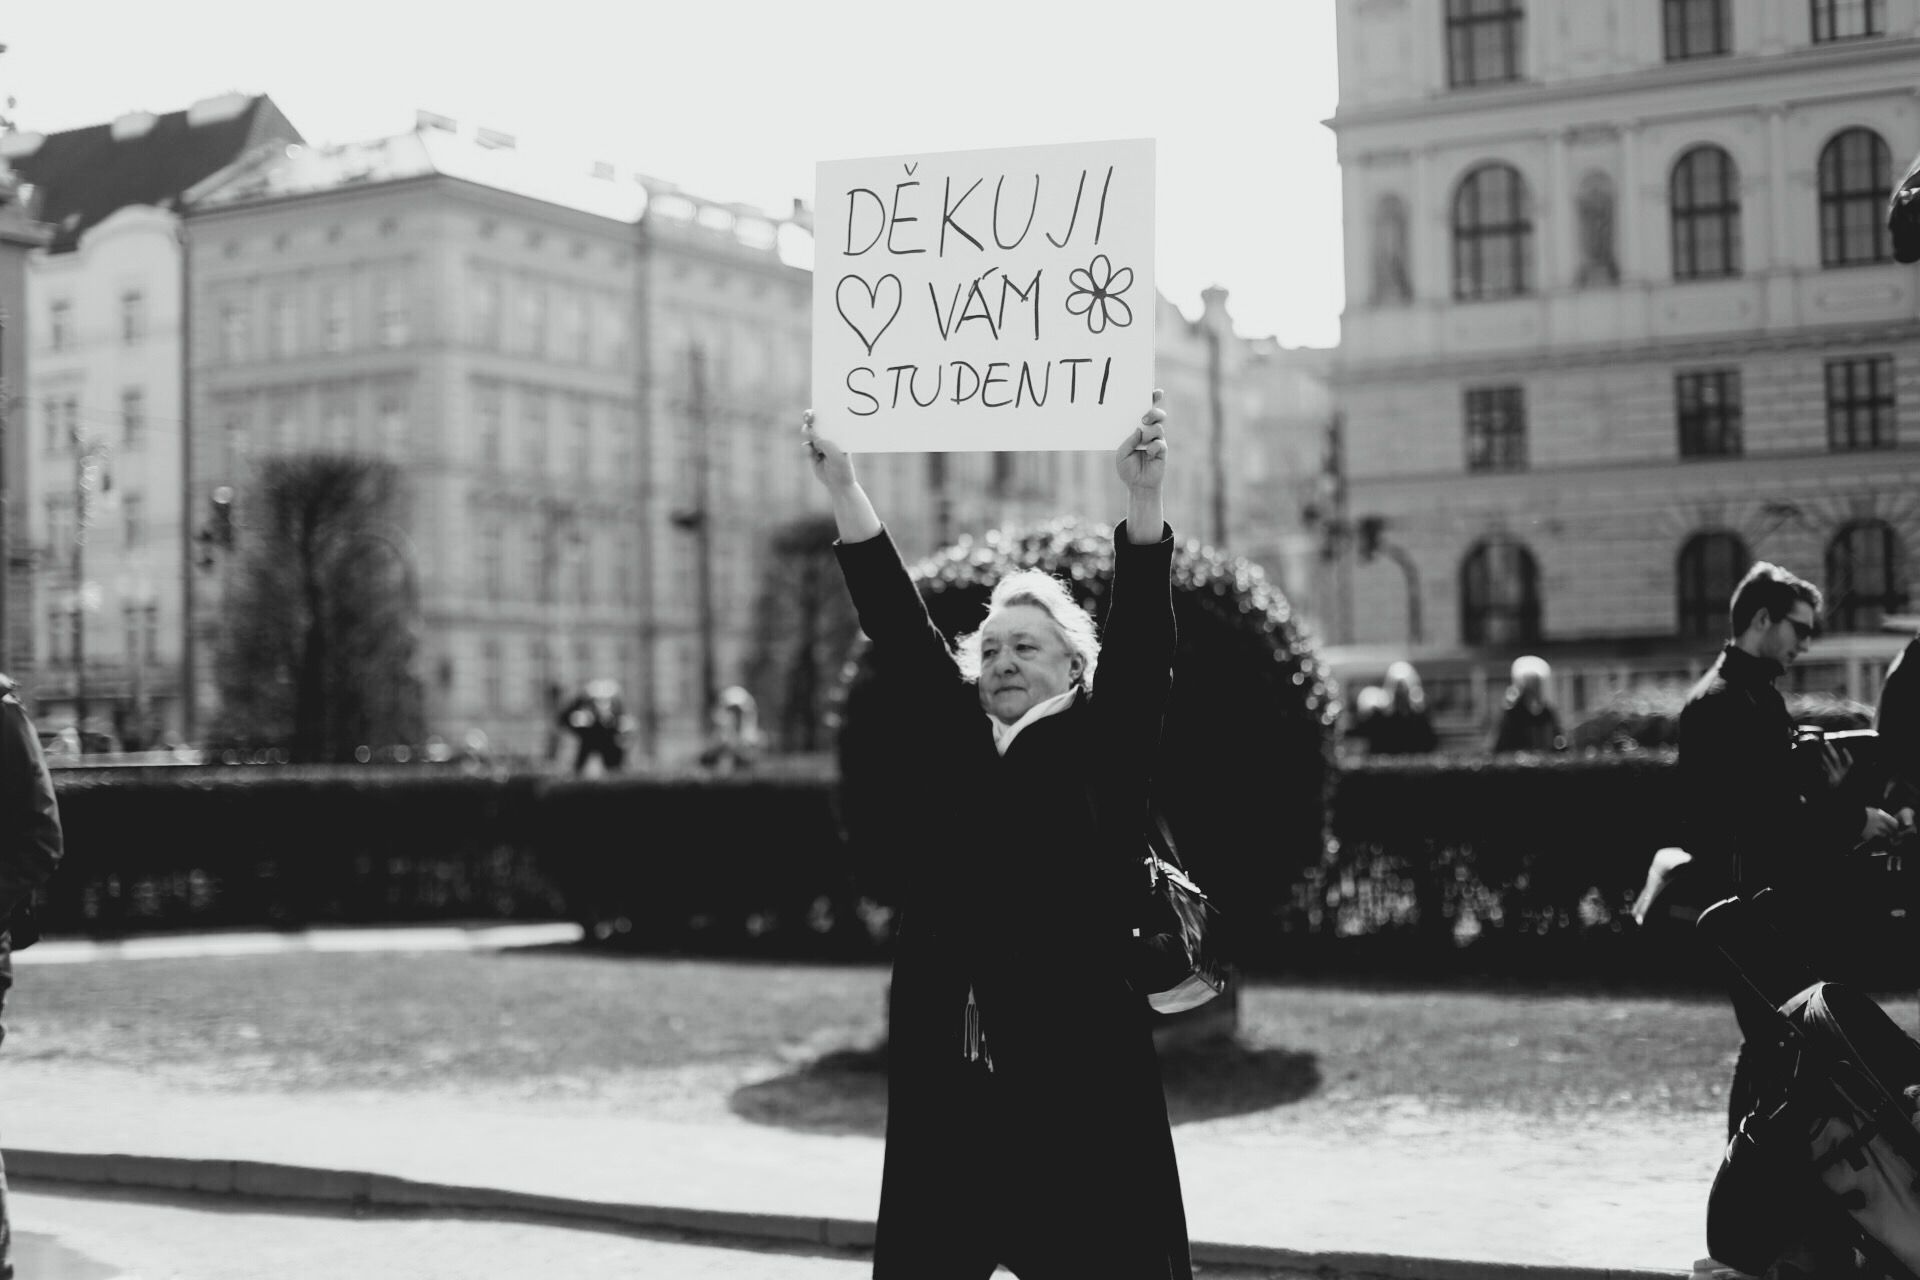 DĚKUJI
VÁM
STUDENTI